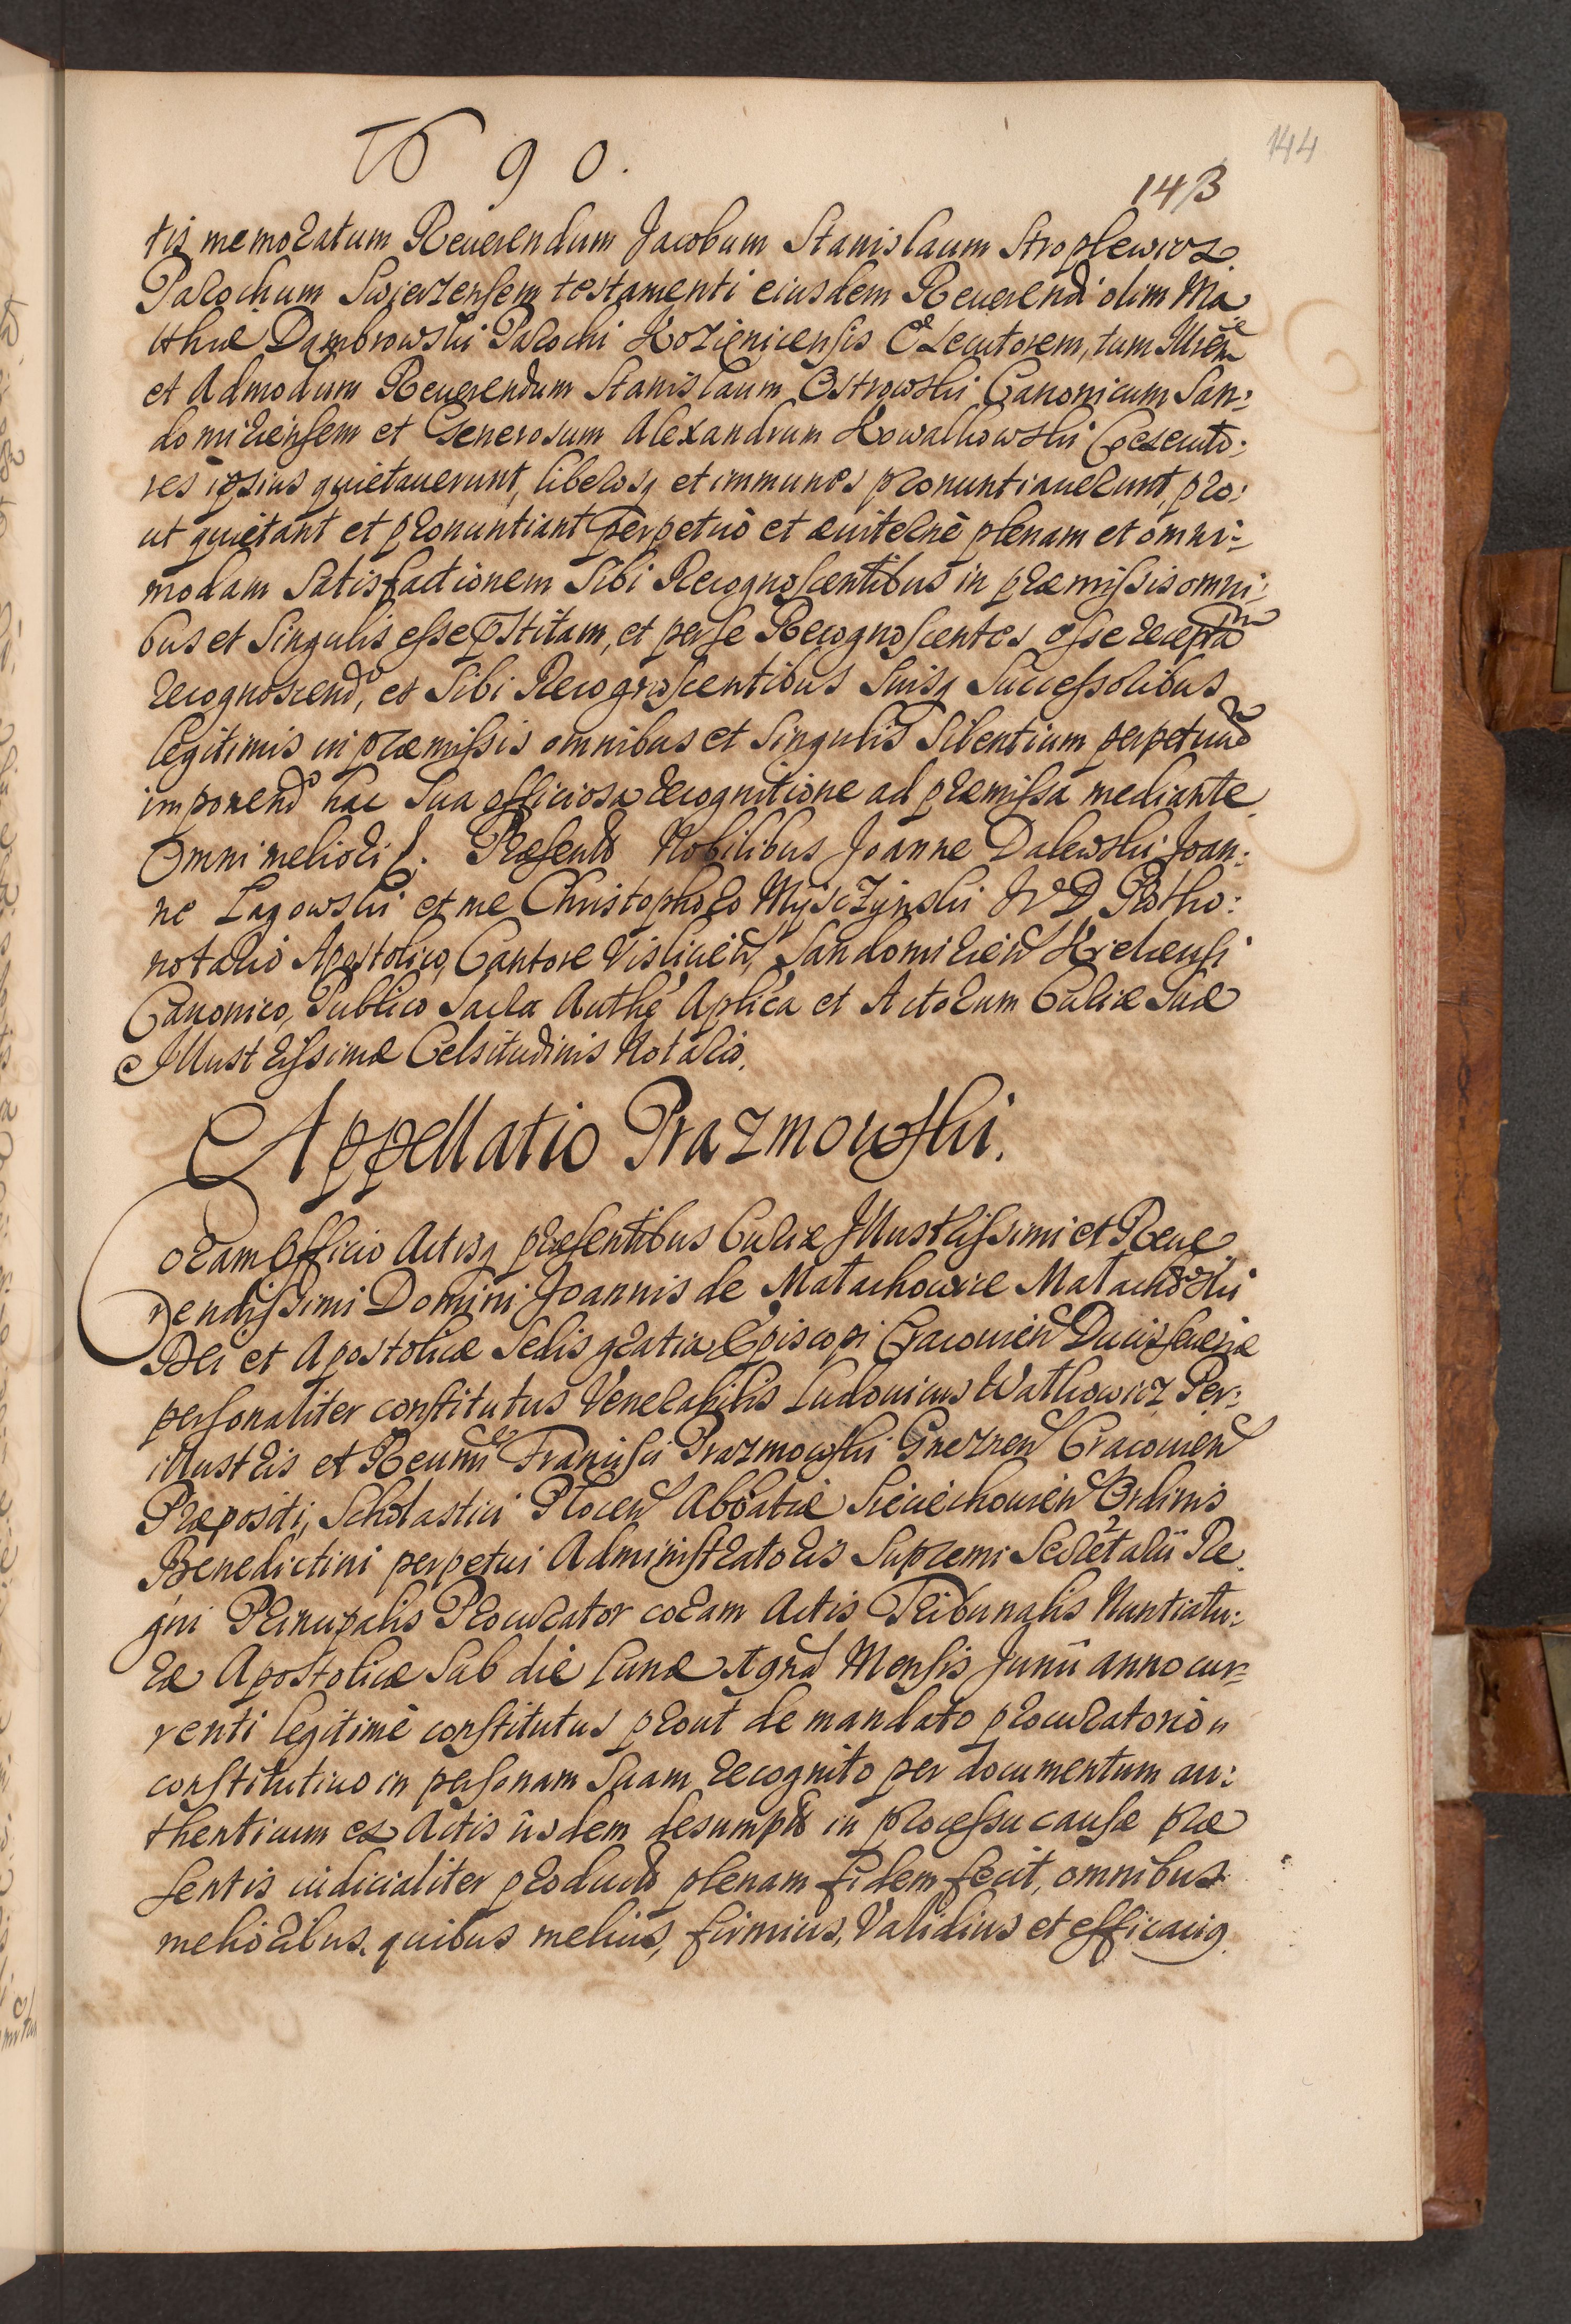 1690.
144
143
tis memoratum Reuerendum Jacobum Stanislaum Stroplewicz
Parochum Swierzensem testamenti eiusdem Reuerendi olim Ma
tthæi Dambrowski Parochi Kozienicensis Executorem, tum Illrem
et Admodum Reuerendum Stanislaum Ostrowski Canonicum San:
domiriensem et Generosum Alexandrum Kowalkowski Coexecuto:
res ipsius quietauerunt, liberosq et immunes pronuntiauerunt, pro:
ut quietant et pronuntiant perpetuò et æuiternè plenam et omni:
modam Satisfactionem Sibi Recognoscentibus in præmissis omni:
bus et Singulis esse pstitam, et per se Recognoscentes esse receptam
recognoscend, et Sibi Recognoscentibus Suisq Successoribus
legitimis in præmissis omnibus et Singulis Silentium perpetuum
imponend hac Sua officiosa recognitione ad præmissa mediante
Omni meliori f. Præsentb Nobilibus Joanne Dalewski Joan:
ne Lagowski et me Christophoro Myszczynski JVD Protho:
notario Apostolico, Cantore Vislicien, Sandomirien Kielcensi
Canonico, Publico Sacra Authe Aplica et Actorum Curiæ Suæ
Illustrissimæ Celsitudinis Notario.
Appellatio Prazmowski.
Coram Officio Actisq præsentibus Curiæ Illustrissimi et Reue
rendissimi Domini Joannis de Małachowice Małachowski
Dei et Apostolicæ Sedis gratia Episcopi Cracouien Ducis Seueriæ
personaliter constitutus Venerabilis Ludouicus Wathowicz Per:
illustris et Reumi Francisci Prazmowski Gneznen Cracouien
Præpositi, Scholastici Plocen Abbatiæ Sieciechouien Ordinis
Benedictini perpetui Administratoris Supremi Secretarii Re
gni Principalis Procurator coram Actis Tribunalis Nuntiatu:
ræ Apostolicæ Sub die Lunæ Mensis Junii anno cur=
renti legitimè constitutus prout de mandato procuratorio
constitutiuo in personam Suam recognito per documentum au:
thenticum ex Actis iisdem desumptb in processu causæ præ
sentis iudicialiter productb plenam fidem fecit, omnibus
melioribus quibus melius, firmius, Validius et efficacig